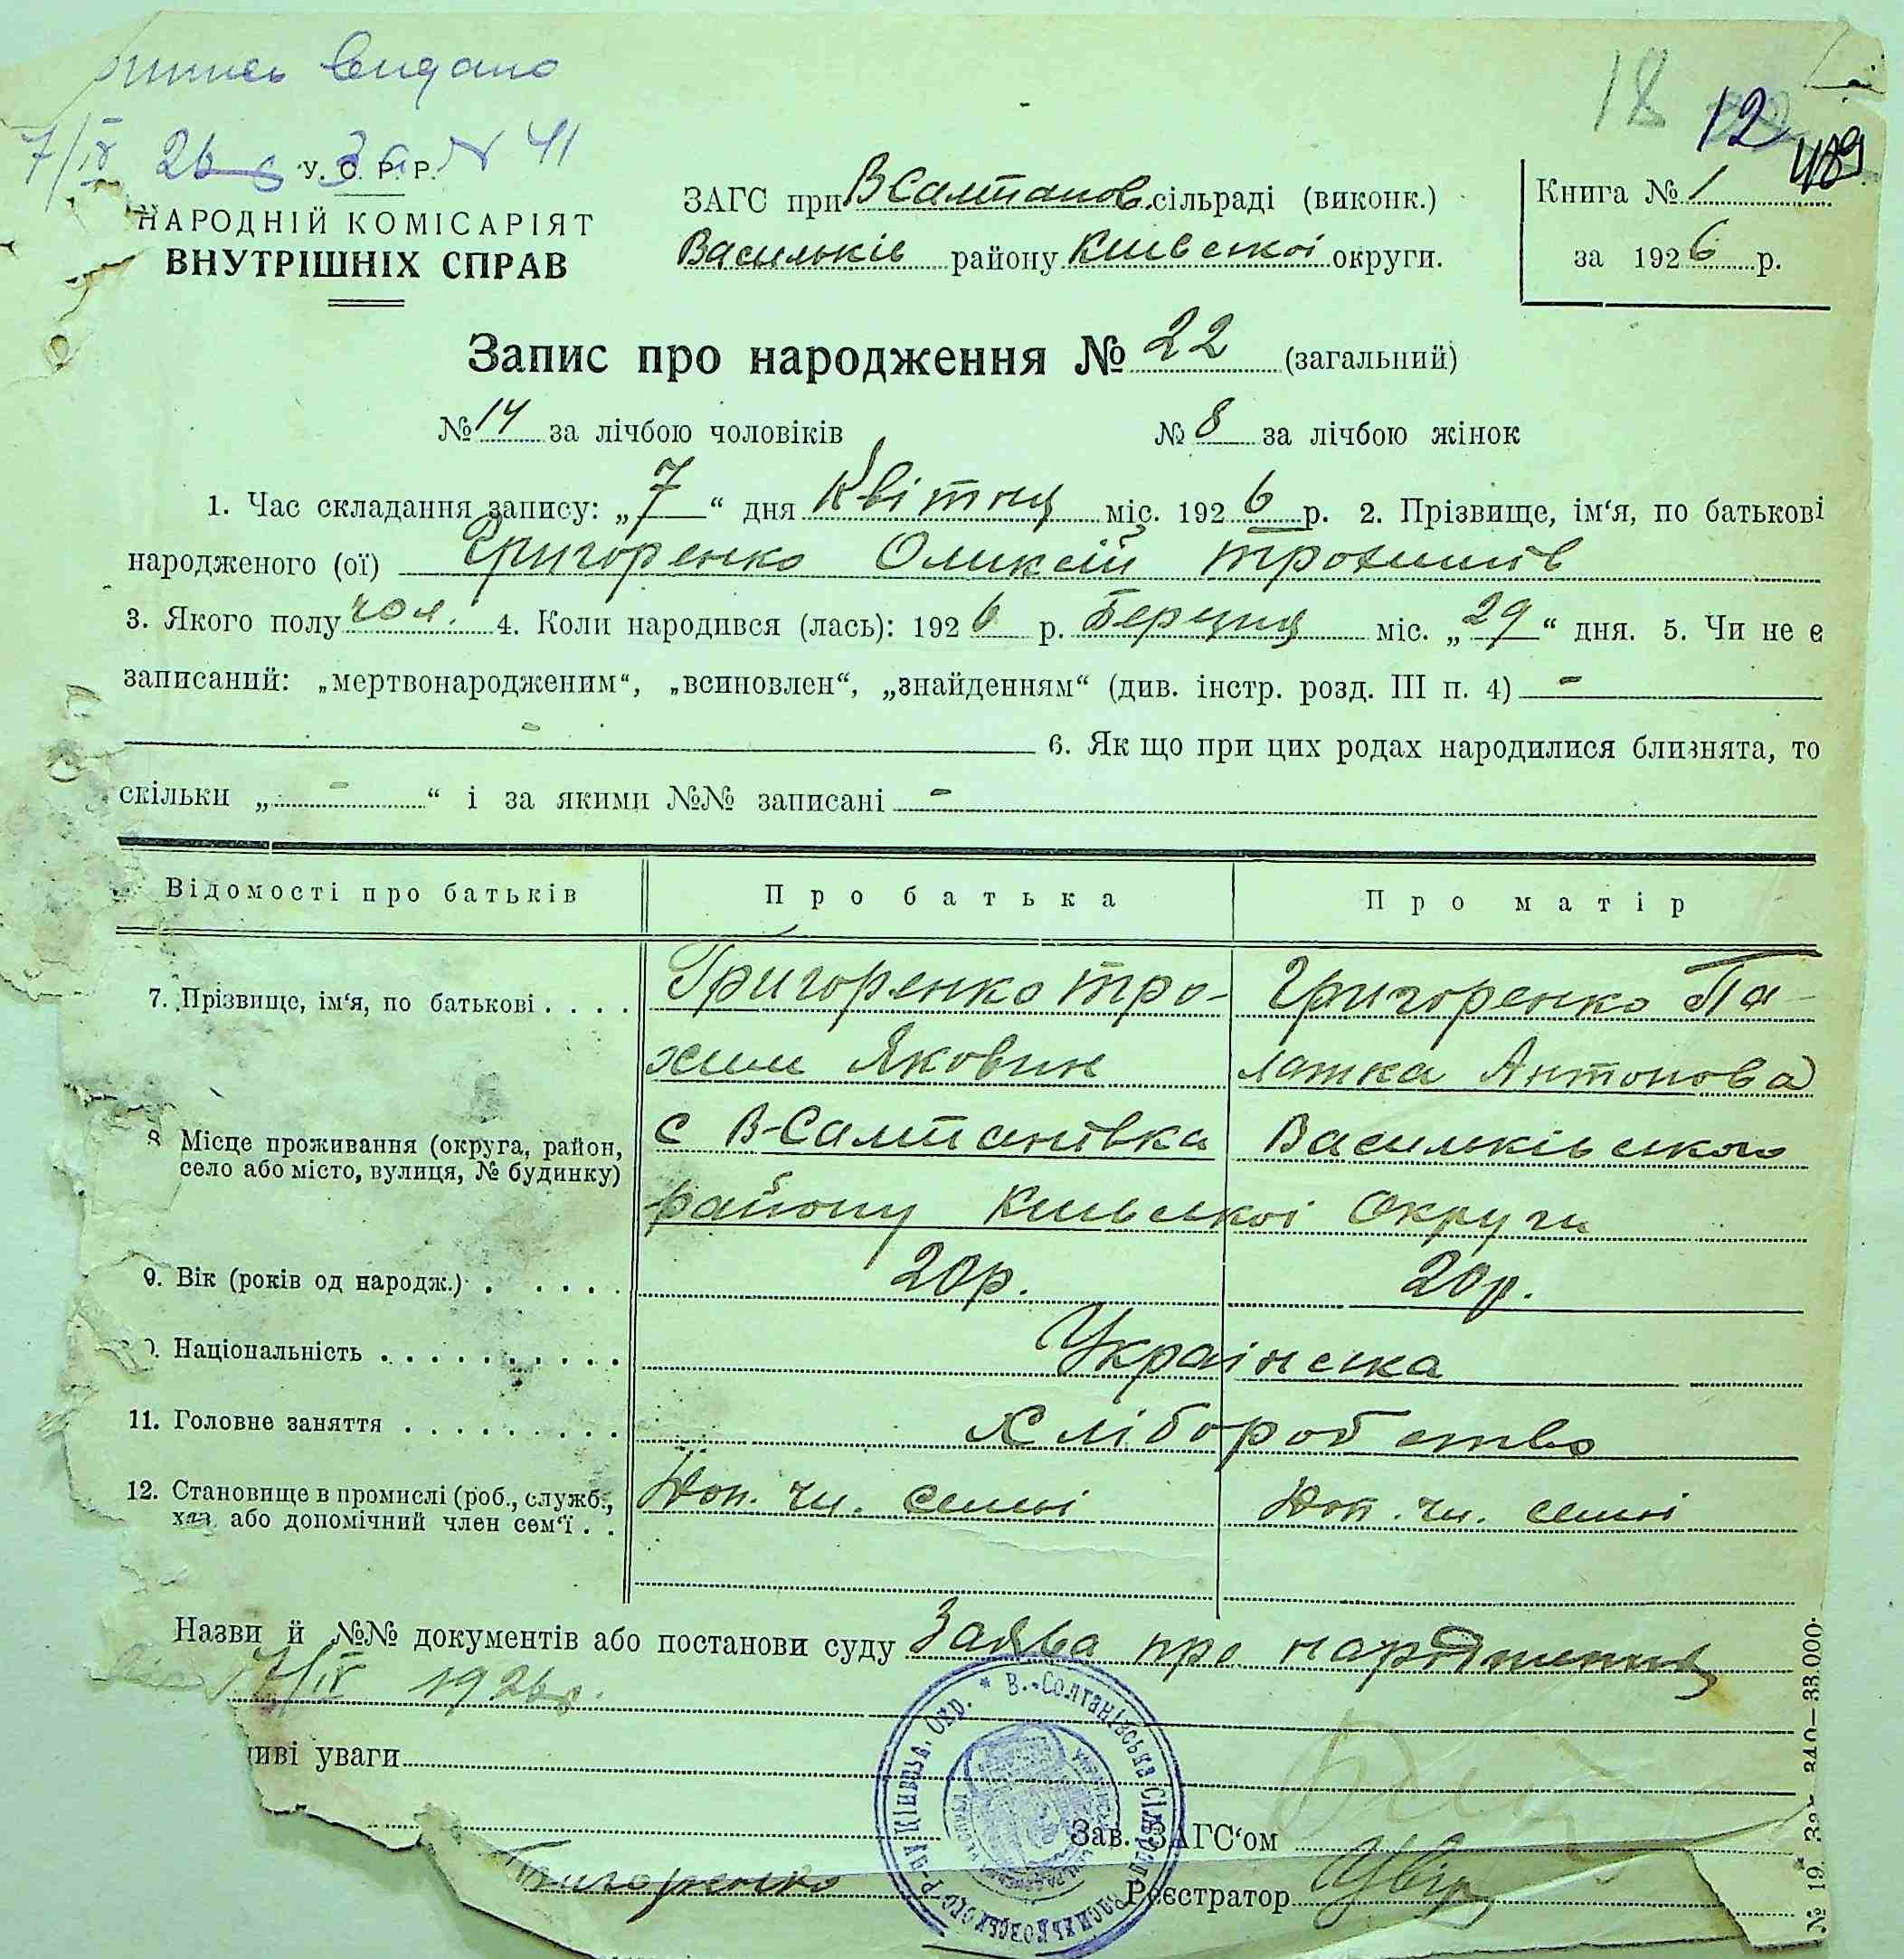 видано
7/IV 26 р за N 41
18 12 48
У. С. Р. Р.
НАРОДНІЙ КОМІСАРІЯТ
ВНУТРІШНІХ СПРАВ
ЗАГС при ВСалтанов. сільраді (виконк.)
Васильків району Київської округи.
Книга № 1
за 1926 р.
Запис про народження № 22 (загальний)
№ 14 за лічбою чоловіків № 8 за лічбою жінок
1. Час складання запису: „7“ дня Квітня міс. 1926 р. 2. Прізвище, ім‘я, по батькові
народженого (ої) Григоренко Оликсій Трохимів
3. Якого полу чол. 4. Коли народився (лась): 1926 р. Березня міс. „29“ дня. 5. Чи не є
записаний: „мертвонародженим“, „всиновлен“, „знайденням“ (див. інстр. розд. III п. 4) -
- 6. Як що при цих родах народилися близнята, то
скільки „ - “ і за якими №№ записані -
Відомості про батьків Про батька Про матір
7. Прізвище, ім‘я, по батькові . . . . Григоренко Тро- Григоренко Па-
хим Яковин лажка Антонова
8 Місце проживання (округа, район, с В-Салтанівка Васильківського
село або місто, вулиця, № будинку)
району Київської Округи
9. Вік (років од народж.) . . . . . 20р. 20р.
0. Національність . . . . . . . . . . Українська
11. Головне заняття . . . . . . . . . Хліборобство
12. Становище в промислі (роб., служб., Доп. чл. семьї Доп. чл. семьї
хаз. або допомічний член сем‘ї . .
Назви й №№ документів або постанови суду Заява про народження
7/IV 1926р.
иві уваги
В.-Солтанівська Сільрада Васильковського Р-ну Київськ. Окр. *
Зав. ЗАГС‘ом
Григоренко
Реєстратор
№ 19 340—33.000